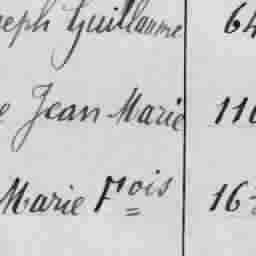 seph Guillaume 64
e Jean Marie 116
Marie Fçois 16